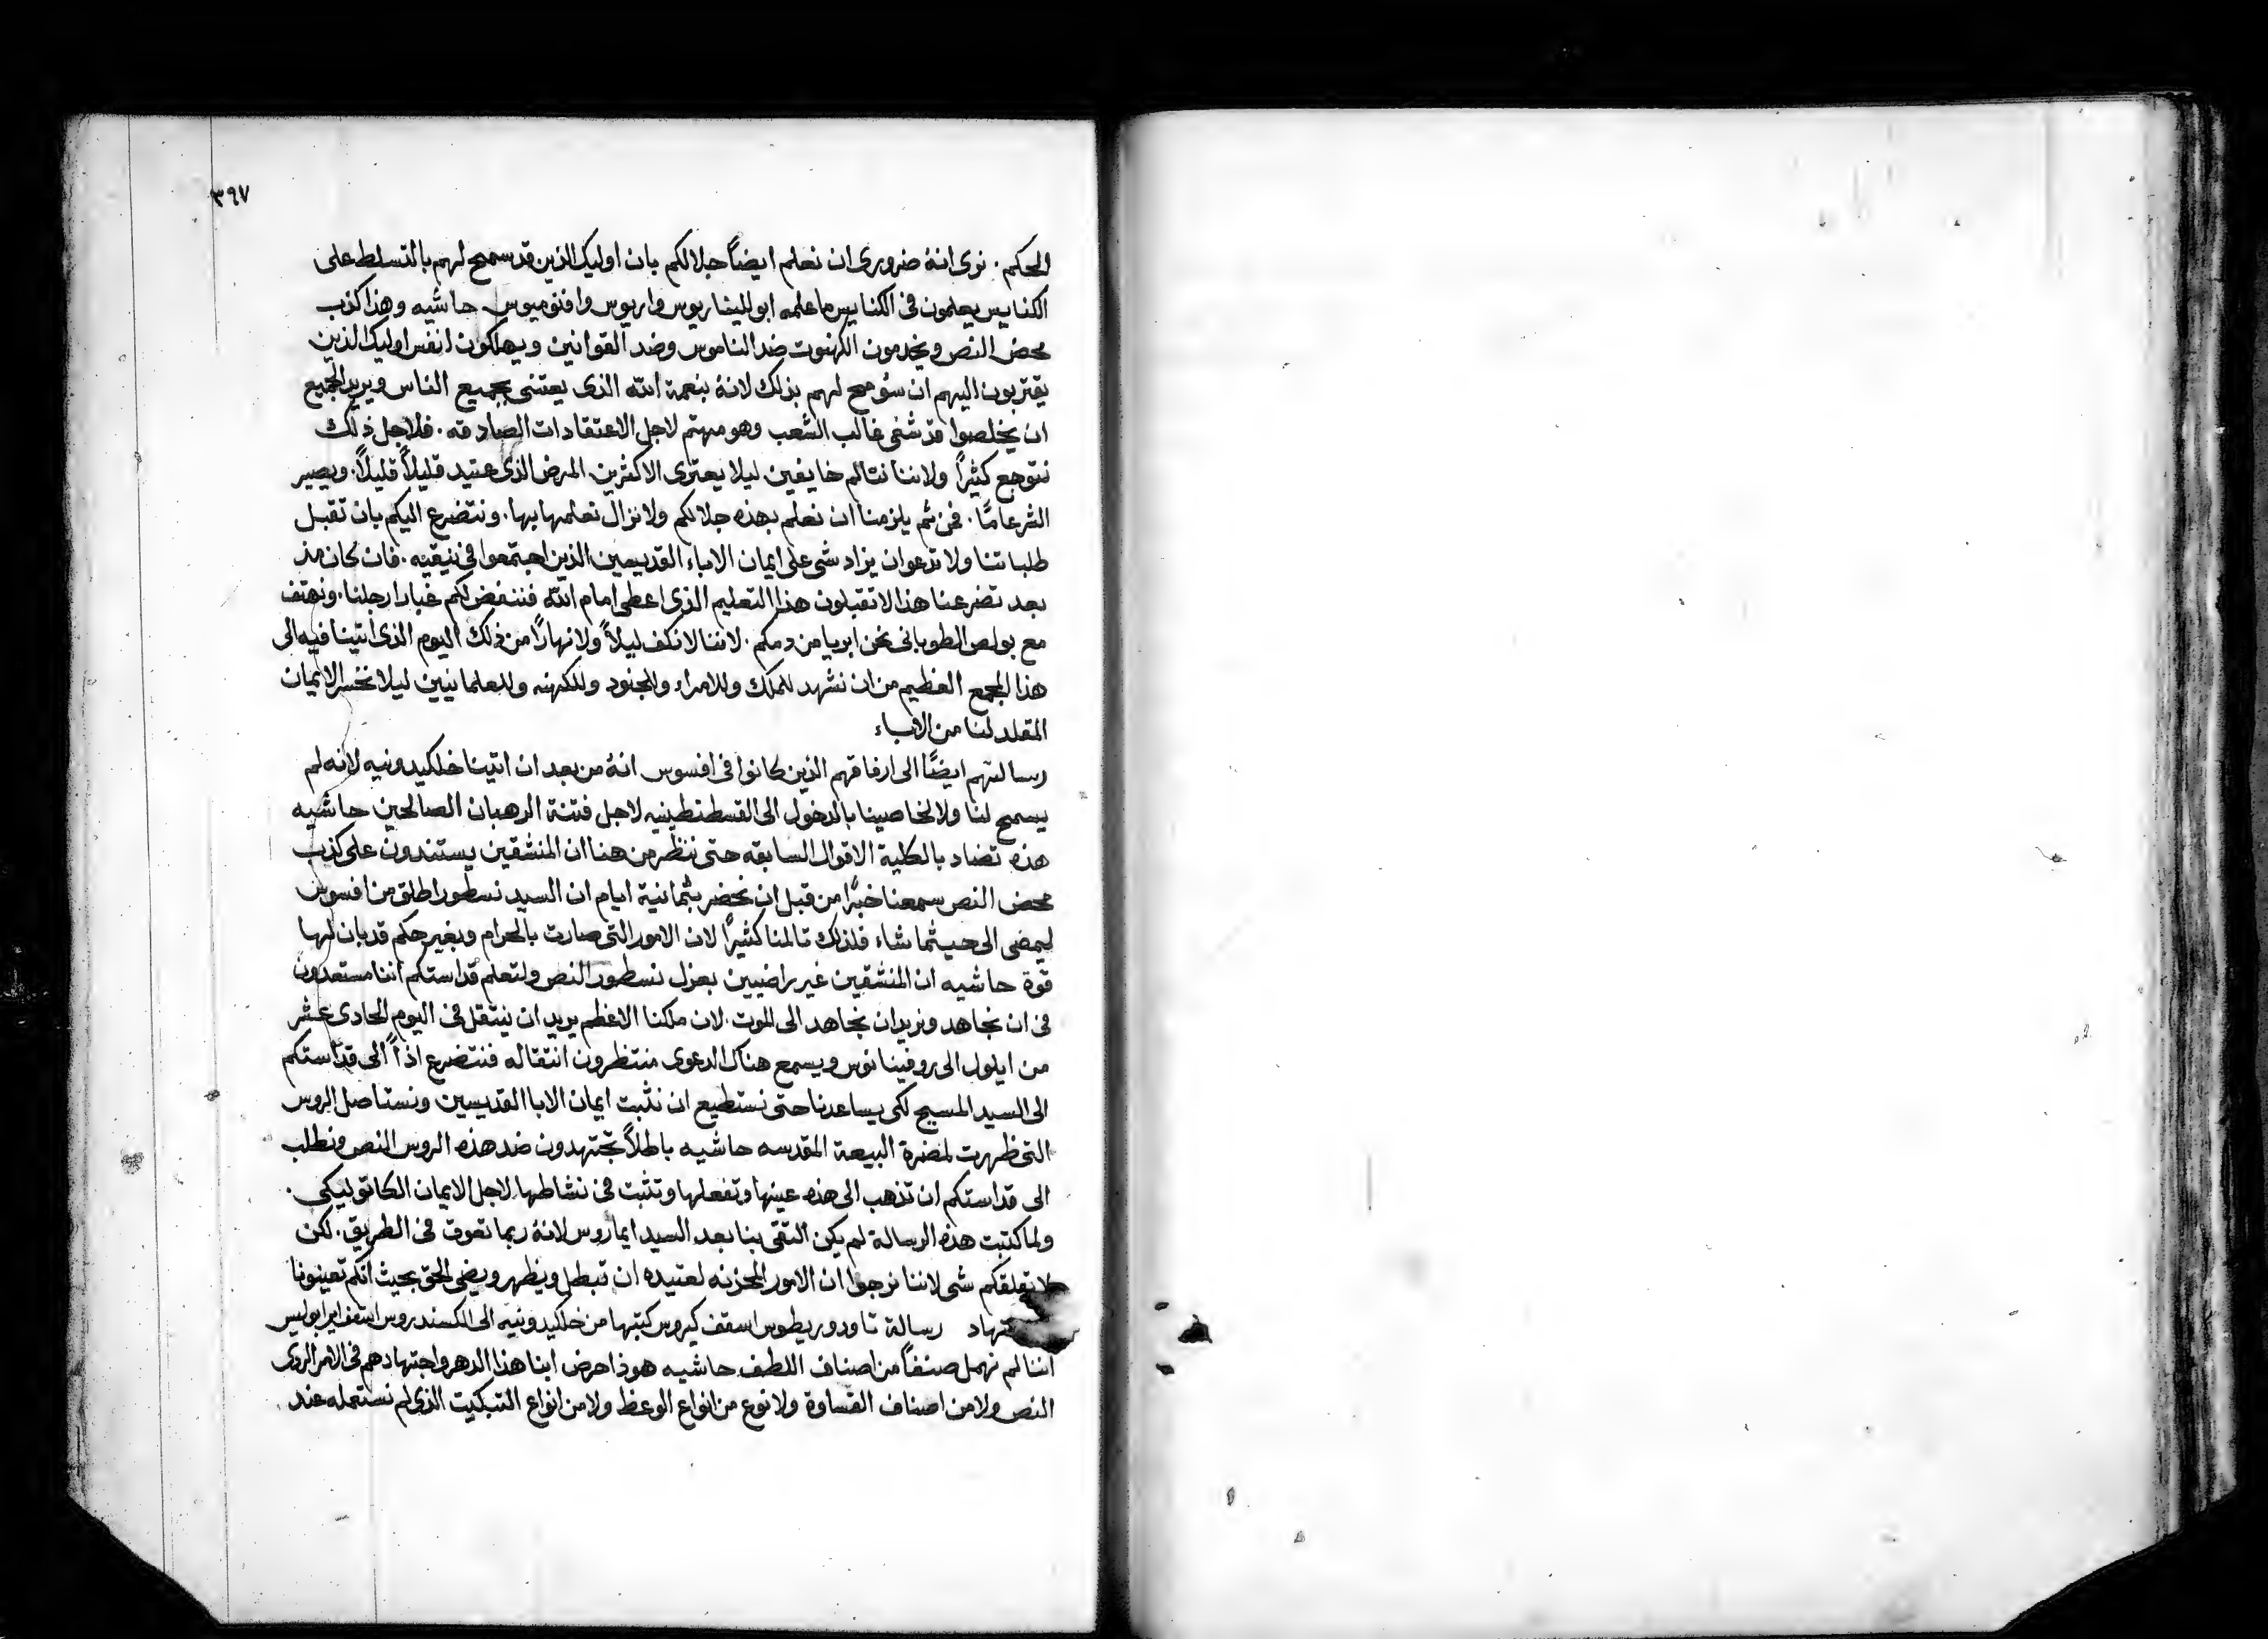 ٣٩٧
الحكم. نرى انهُ ضرورى ان نعلم ايضاً جلالكم بان اوليك الذين قد سمح لهم بالتسلط على
الكنايس يعلمون فى الكنايس ما علمه ابوليناريوس واريوس وافنوميوس حاشيه وهذا كذب
محض النص ويخدمون الكهنوت ضد الناموس وضد القوانين ويهلكون انفس اوليك الذين
يقتربون اليهم ان سُومح لهم بذلك لانهُ بنعمة الله الذى يعتنى بجميع الناس ويريد الجميع
ان يخلصوا قد شفى غالب الشعب وهو مهتم لاجل الاعتقادات الصادقه. فلاجل ذلك
نتوجع كثيراً ولاننا نتالم خايفين ليلا يعترى الاكثرين المرض الذى عتيد قليلاً قليلاً. ويصير
الشر عامًا. فمن ثم يلزمنا ان نعلم بهذه جلالكم ولا نزال نعلمها بها. ونتضرع اليكم بان تقبل
طلباتنا ولا تدعوان يزاد شى على ايمان الاباء القديسين الذين اجتمعوا فى نيقيه. فان كان من
بعد تضرعنا هذا لا تقبلون هذا التعليم الذى اعطى امام الله فننفض لكم غبار ارجلنا. ونهتف
مع بولص الطوبانى نحن ابريا من دمكم. لاننا لا نكف ليلاً ولا نهارًا من ذلك اليوم الذى اتينا فيه الى
هذا المجمع العظيم من ان نشهد للملك وللامراء وللجنود وللكهنه وللعلمانيين ليلا نخسر الايمان
المقلد لنا من الاباء
رسالتهم ايضًا الى ارفاقهم الذين كانوا فى افسوس انهُ من بعد ان اتينا خلكيدونيه لانه لم
يسمح لنا ولا لخاصيينا بالدخول الى القسطنطينيه لاجل فتنة الرهبان الصالحين حاشيه
هذه تضاد بالكلية الاقوال السابقه حتى ننظر من هنا ان المنشقين يستندون على كذب
محض النص سمعنا خبرًا من قبل ان نحضر بثمانية ايام ان السيد نسطور اطلق من افسوس
ليمضى الى حيثما شاء فلذلك تالمنا كثيرًا لان الامور التى صارت بالحرام وبغير حكم قد بان لها
قوة حاشيه ان المنشقين غير راضيين بعزل نسطور النص ولتعلم قداستكم اننا مستعدون
فى ان نجاهد ونريد ان نجاهد الى الموت. لان ملكنا الاعظم يريد ان ينتقل فى اليوم الحادى عشر
من ايلول الى روفينانوس ويسمع هناك الدعوى منتظرون انتقاله فنتضرع اذاً الى قداستكم
الى السيد المسيح لكى يساعدنا حتى نستطيع ان نثبت ايمان الابا القديسين ونستاصل الروس
التى ظهرت لمضرة البيعة المقدسه حاشيه باطلاً تجتهدون ضد هذه الروس النص ونطلب
الى قداستكم ان تذهب الى هذه عينها وتفعلها وتثبت فى نشاطها لاجل الايمان الكاتوليكى.
ولما كتبت هذه الرسالة لم يكن التقى بنا بعد السيد ايماروس لانهُ ربما تعوق فى الطريق. لكن
لا تقلقكم شى لاننا نرجوا ان الامور المحزنه لعتيده ان تبطل ويظهر ويضى الحق بحيث انكم تعينونا
رسالة تاودوريطوس اسقف كيروس كتبها من خلكيدونيه الى الكسندروس اسقف ايرابوليس
اننا لم نهمل صنفاً من اصناف اللطف حاشيه هوذا حرض ابنا هذا الدهر واجتهادهم فى الامر الردى
النص ولا من اصناف القساوة ولا نوع من انواع الوعظ ولا من انواع التبكيت الذى لم نستعمله عند